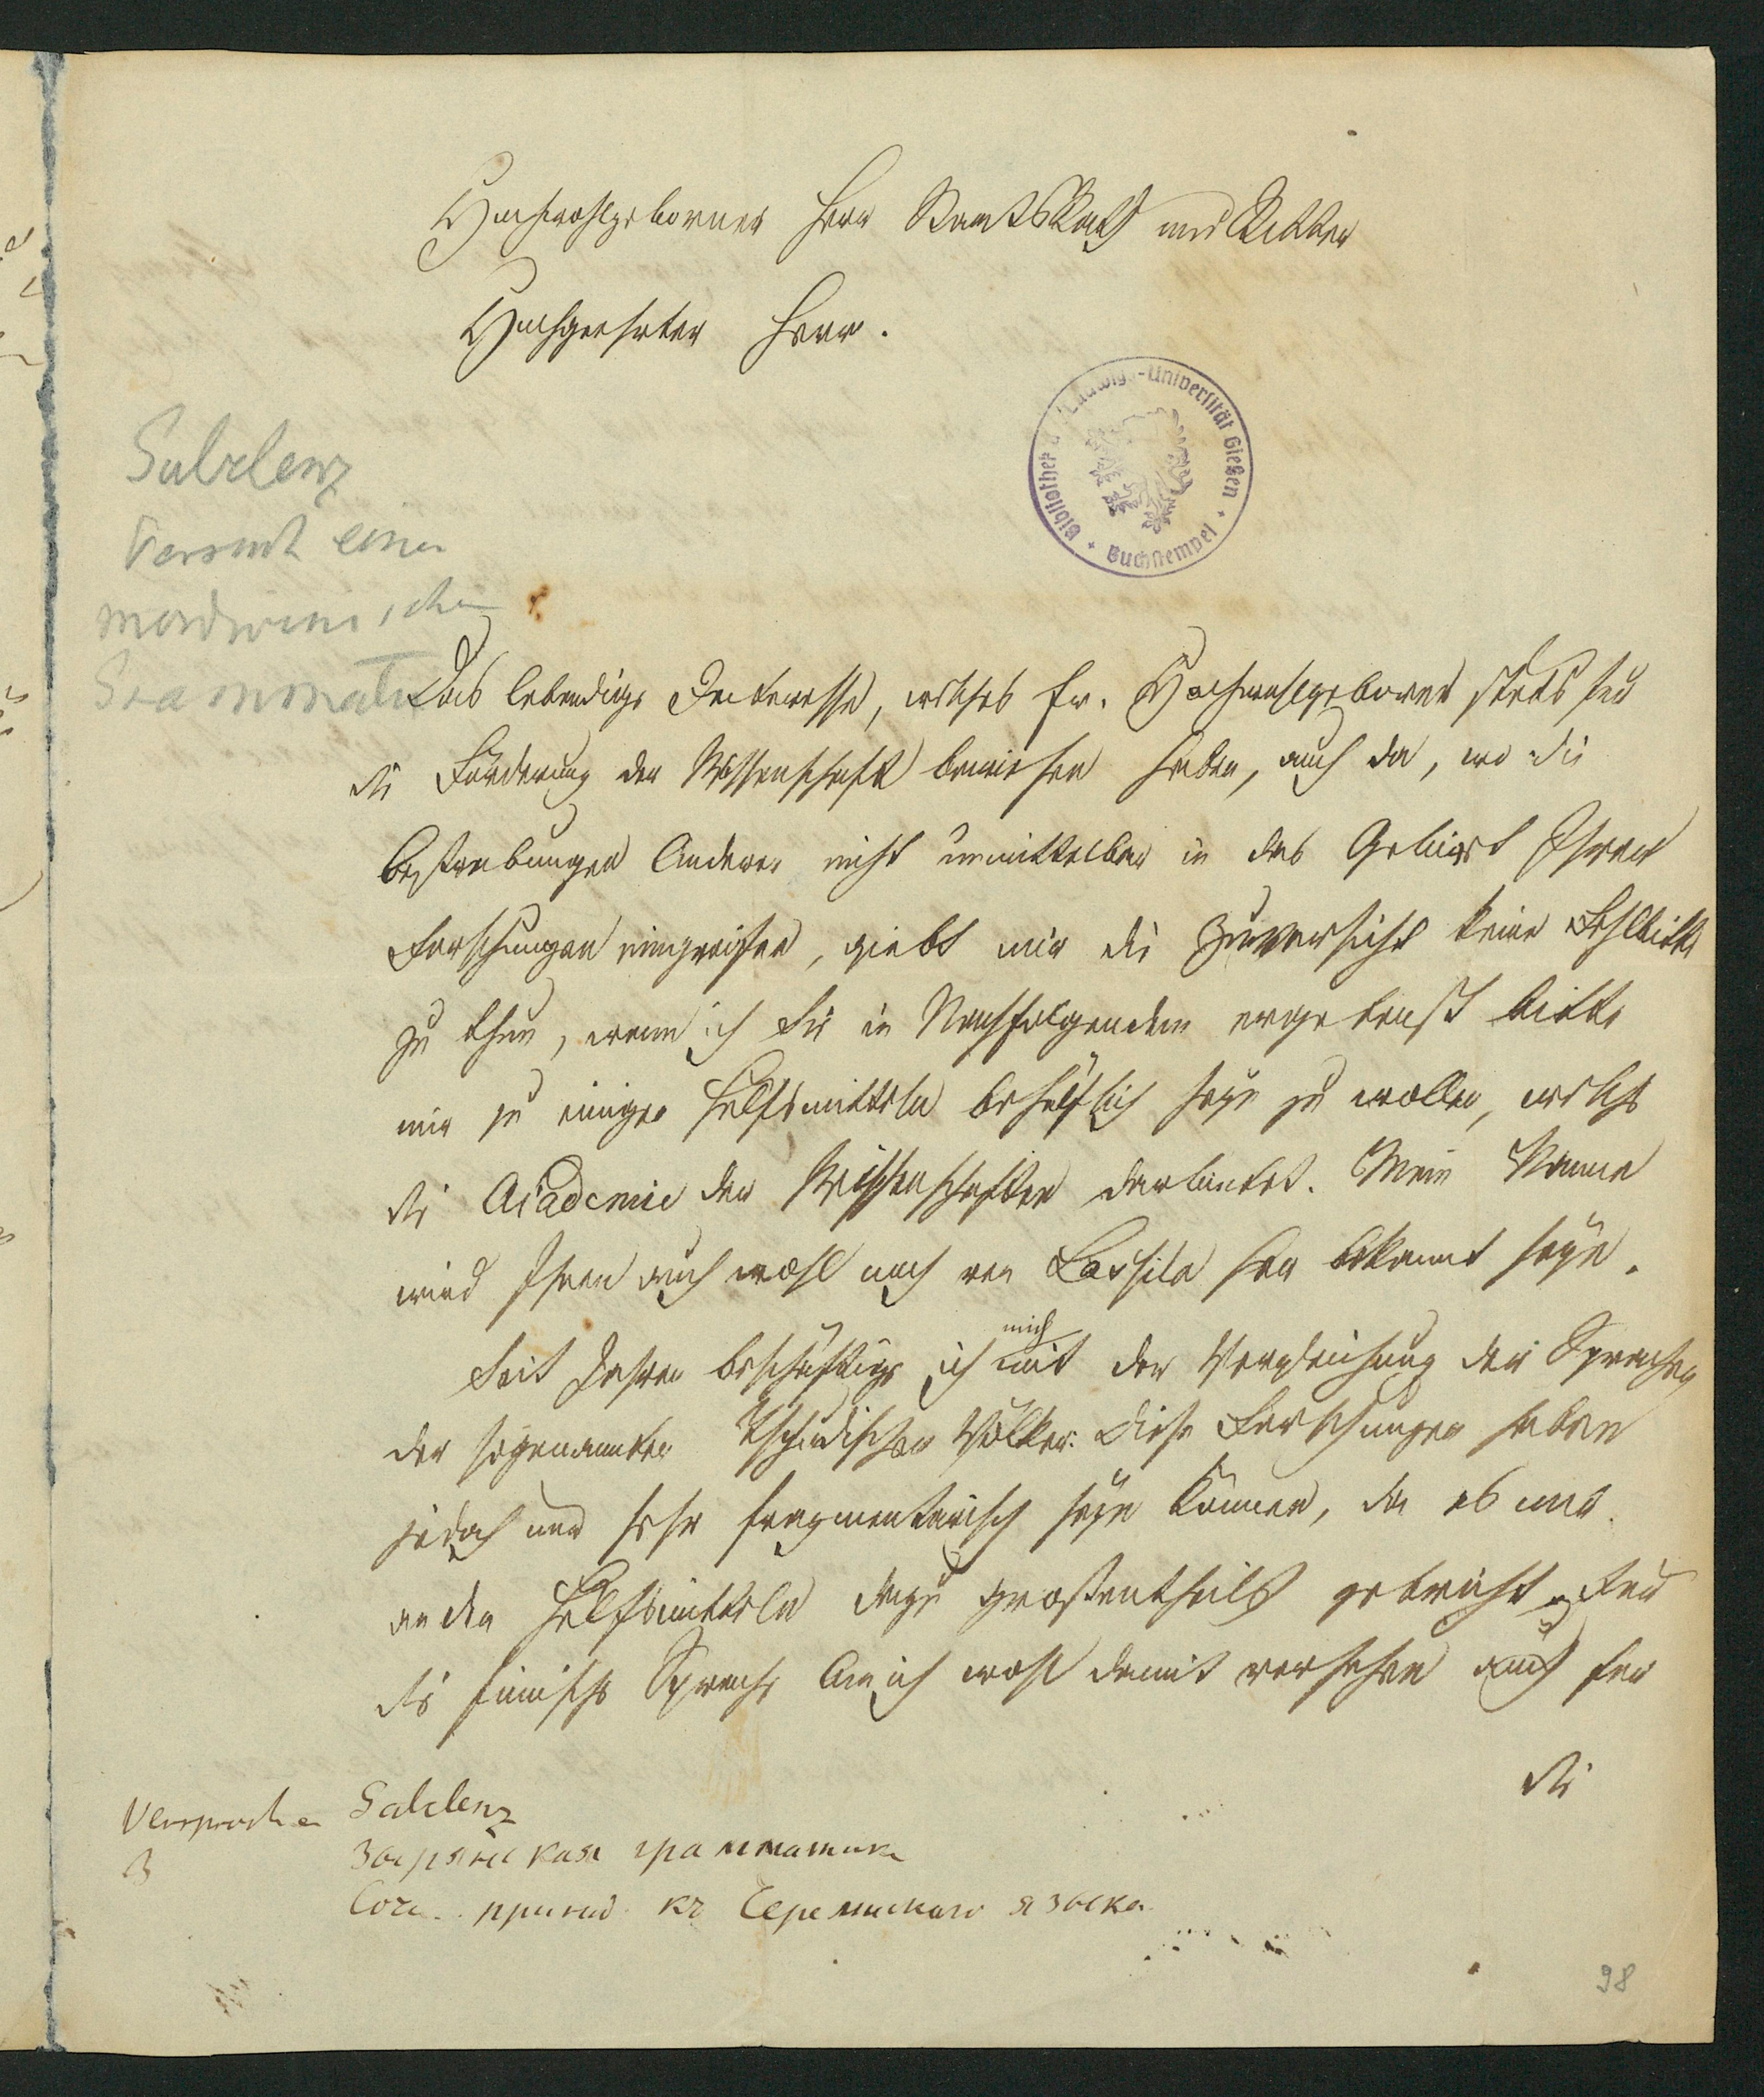 Hochwohlgeborner Herr StaatsRath und Ritter
Hochgeehrter Herr.
Bibliothek d. Ludwigs-Universität Gießen
Buchstempel
Gabelenz
Versuch einer
mordwinischen
Grammatik
Das lebendige Interesse, welches Ew. Hochwohlgeboren stets für
die Förderung der Wissenschaft bewiesen haben, auch da, wo die
Bestrebungen Anderer nicht unmittelbar in das Gebiet Ihrer
Forschungen eingreifen, giebt mir die Zuversicht keine Fehlbitte
zu thun, wenn ich Sie in Nachfolgendem ergebenst bitte
mir zu einigen Hülfsmitteln behülflich seyn zu wollen, welche
die Academie der Wissenschaften darbietet. Mein Name
wird Ihnen auch wohl noch von her bekannt seyn.
Seit Jahren beschäftige ich mich mit der Vergleichung der Sprachen
der sogenannten Tschudischen Völker. Diese Forschungen haben
jedoch nur sehr fragmentarisch seyn können, da es mir
an den Hülfsmitteln dazu großentheils gebricht. Für
die finnische Sprache bin ich wohl damit versehen auch für
die
Versprochen Gabelenz
3 Зырянская грамматика
Соч. принад. къ Черемискаго языка
98